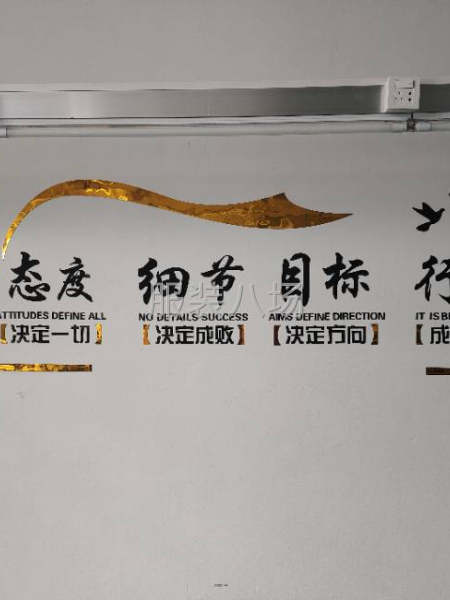 态度 细节 目标 行
ATTITUDES DEFINE ALL NO DETAILS SUCCESS AIMS DEFINE DIRECTION IT IS B
【决定一切】 【决定成败】 【决定方向】 【成
服装八场